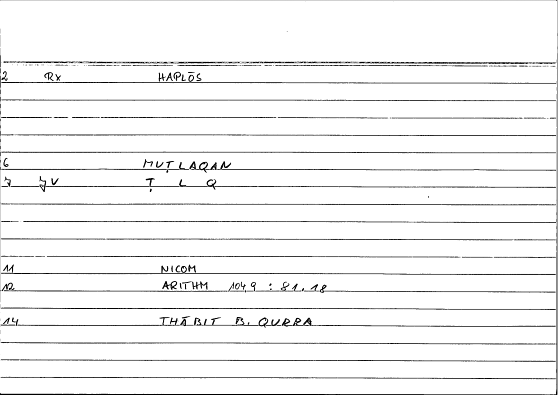 2 Rx HAPLŌS
6 MUṬLAQAN
7 V Ṭ L Q
11 NICOM
12 ARITHM 1049 : 81.18
14 THĀBIT B. QURRA